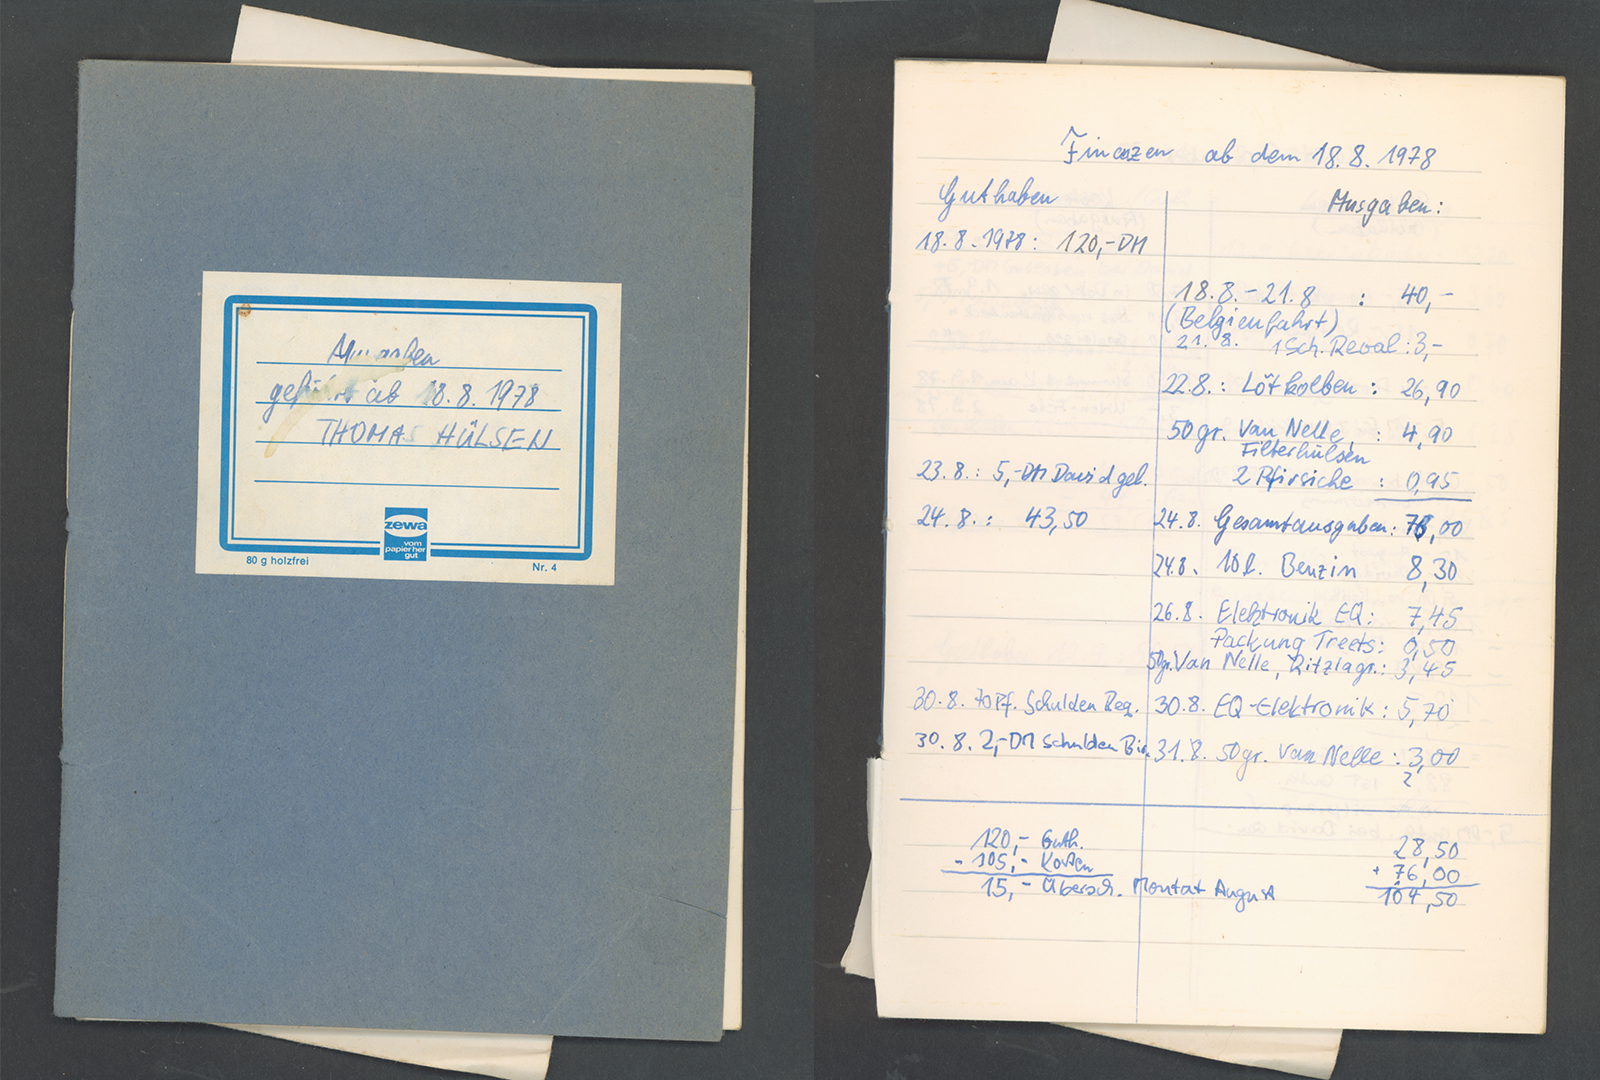 geführt ab 18.8.1978
THOMAS HÜLSEN
zewa
vom
papier her
gut
80 g holzfrei
Nr. 4
Finanzen ab dem 18.8.1978
Guthaben
Ausgaben:
18.8.1978: 120,-DM
18.8.-21.8 : 40,-
(Belgienfahrt)
21.8. 1 Sch. Reval: 3,-
22.8.: Lötkolben: 26,90
50gr. Van Nelle, : 4,90
Filterhülsen
23.8.: 5,-DM David gel.
2 Pfirsiche : 0,95
24.8.: 43,50
24.8. Gesamtausgaben: 76,00
24.8. 10l. Benzin 8,30
26.8. Elektronik EQ: 7,45
Packung Treets: 0,50
50gr. Van Nelle, : 3,45
30.8. 70Pf. Schulden
30.8. EQ-Elektronik: 5,70
30.8. 2,-DM Schulden
31.8. 50gr. Van Nelle: 3,00
2
120,- Guth.
- 105,- Kosten
15,- Übersch. Montat August
28,50
+ 76,00
104,50